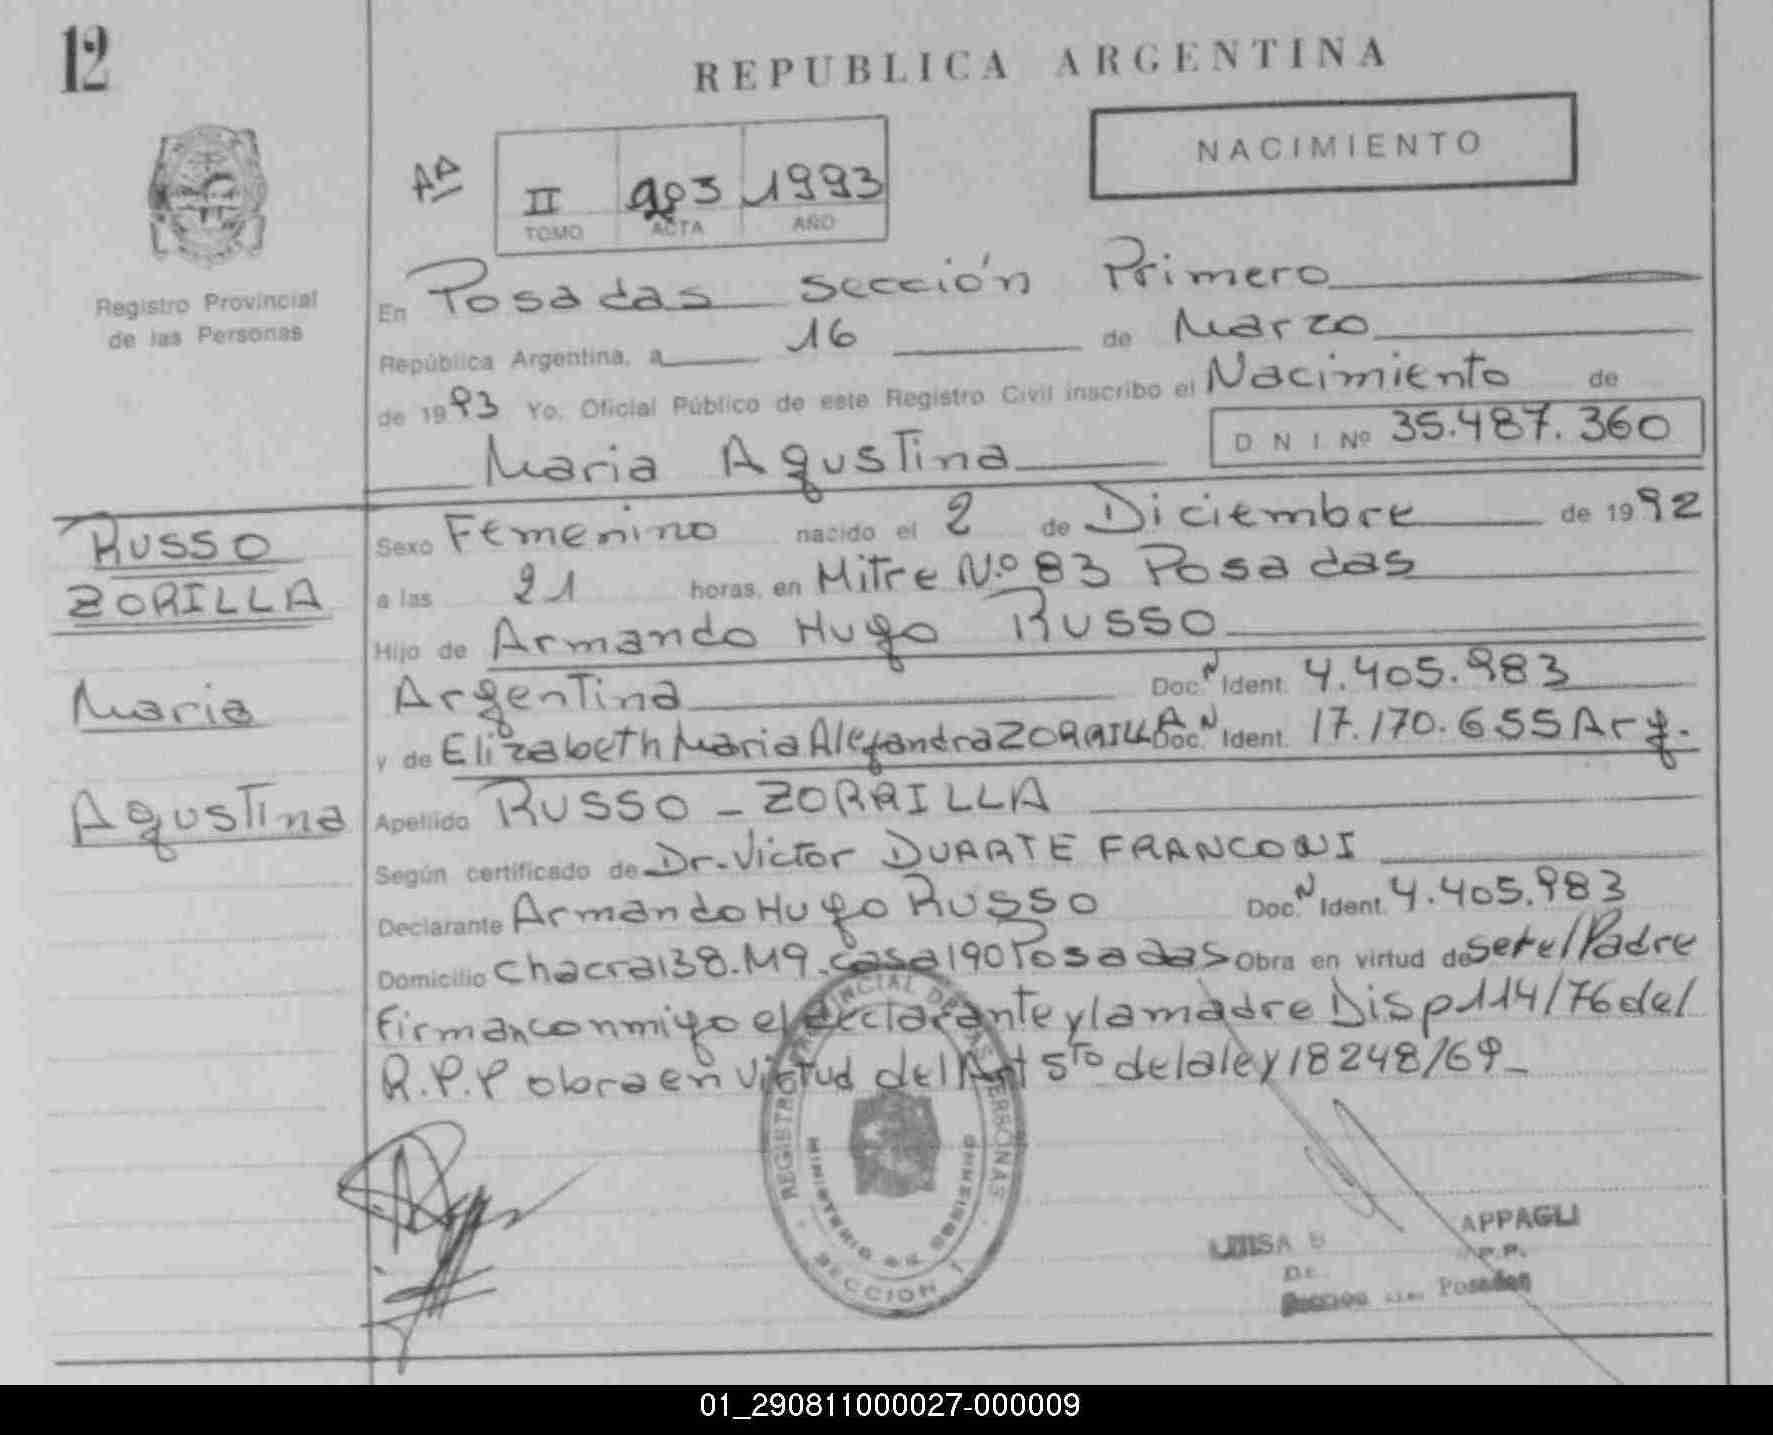 12
REPUBLICA ARGENTINA
NACIMIENTO
Aª II 903 1993
TOMO ACTA AÑO
Registro Provincial
de las Personas
En Posadas sección Primero
República Argentina, a 16 de Marzo
de 1993 Yo, Oficial Público de este Registro Civil inscribo el Nacimiento de
Maria Agustina D N I Nº 35.487.360
RUSSO
ZORILLA
Maria
Agustina
Sexo Femenino nacido el 2 de Diciembre de 1992
a las 21 horas, en Mitre N.º 83 Posadas
Hijo de Armando Hugo RUSSO
Argentina Doc. N Ident. 4.405.983
y de Elizabeth Maria Alejandra ZORRILLA Doc. N Ident. 17.170.655 Arg.
Apellido RUSSO - ZORRILLA
Según certificado de Dr. Victor DUARTE FRANCONI
Declarante Armando Hugo RUSSO Doc. N Ident. 4.405.983
Domicilio chacra 138. M9. casa 190 Posadas Obra en virtud de ser el Padre
Firman conmigo el declarante y la madre Disp 114/76 del
R.P.P obra en virtud del Art 5to de la ley 18248/69
REGISTRO PROVINCIAL DE LAS PERSONAS
MINISTERIO DE GOBIERNO
SECCION 1
LUISA B APPAGLI
R.P.P.
Posadas
01_290811000027-000009